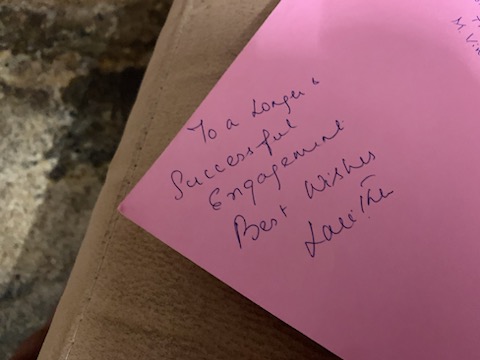 To a Longer &
Successful
Engagement.
Best Wishes
Lalitha
M. Vi